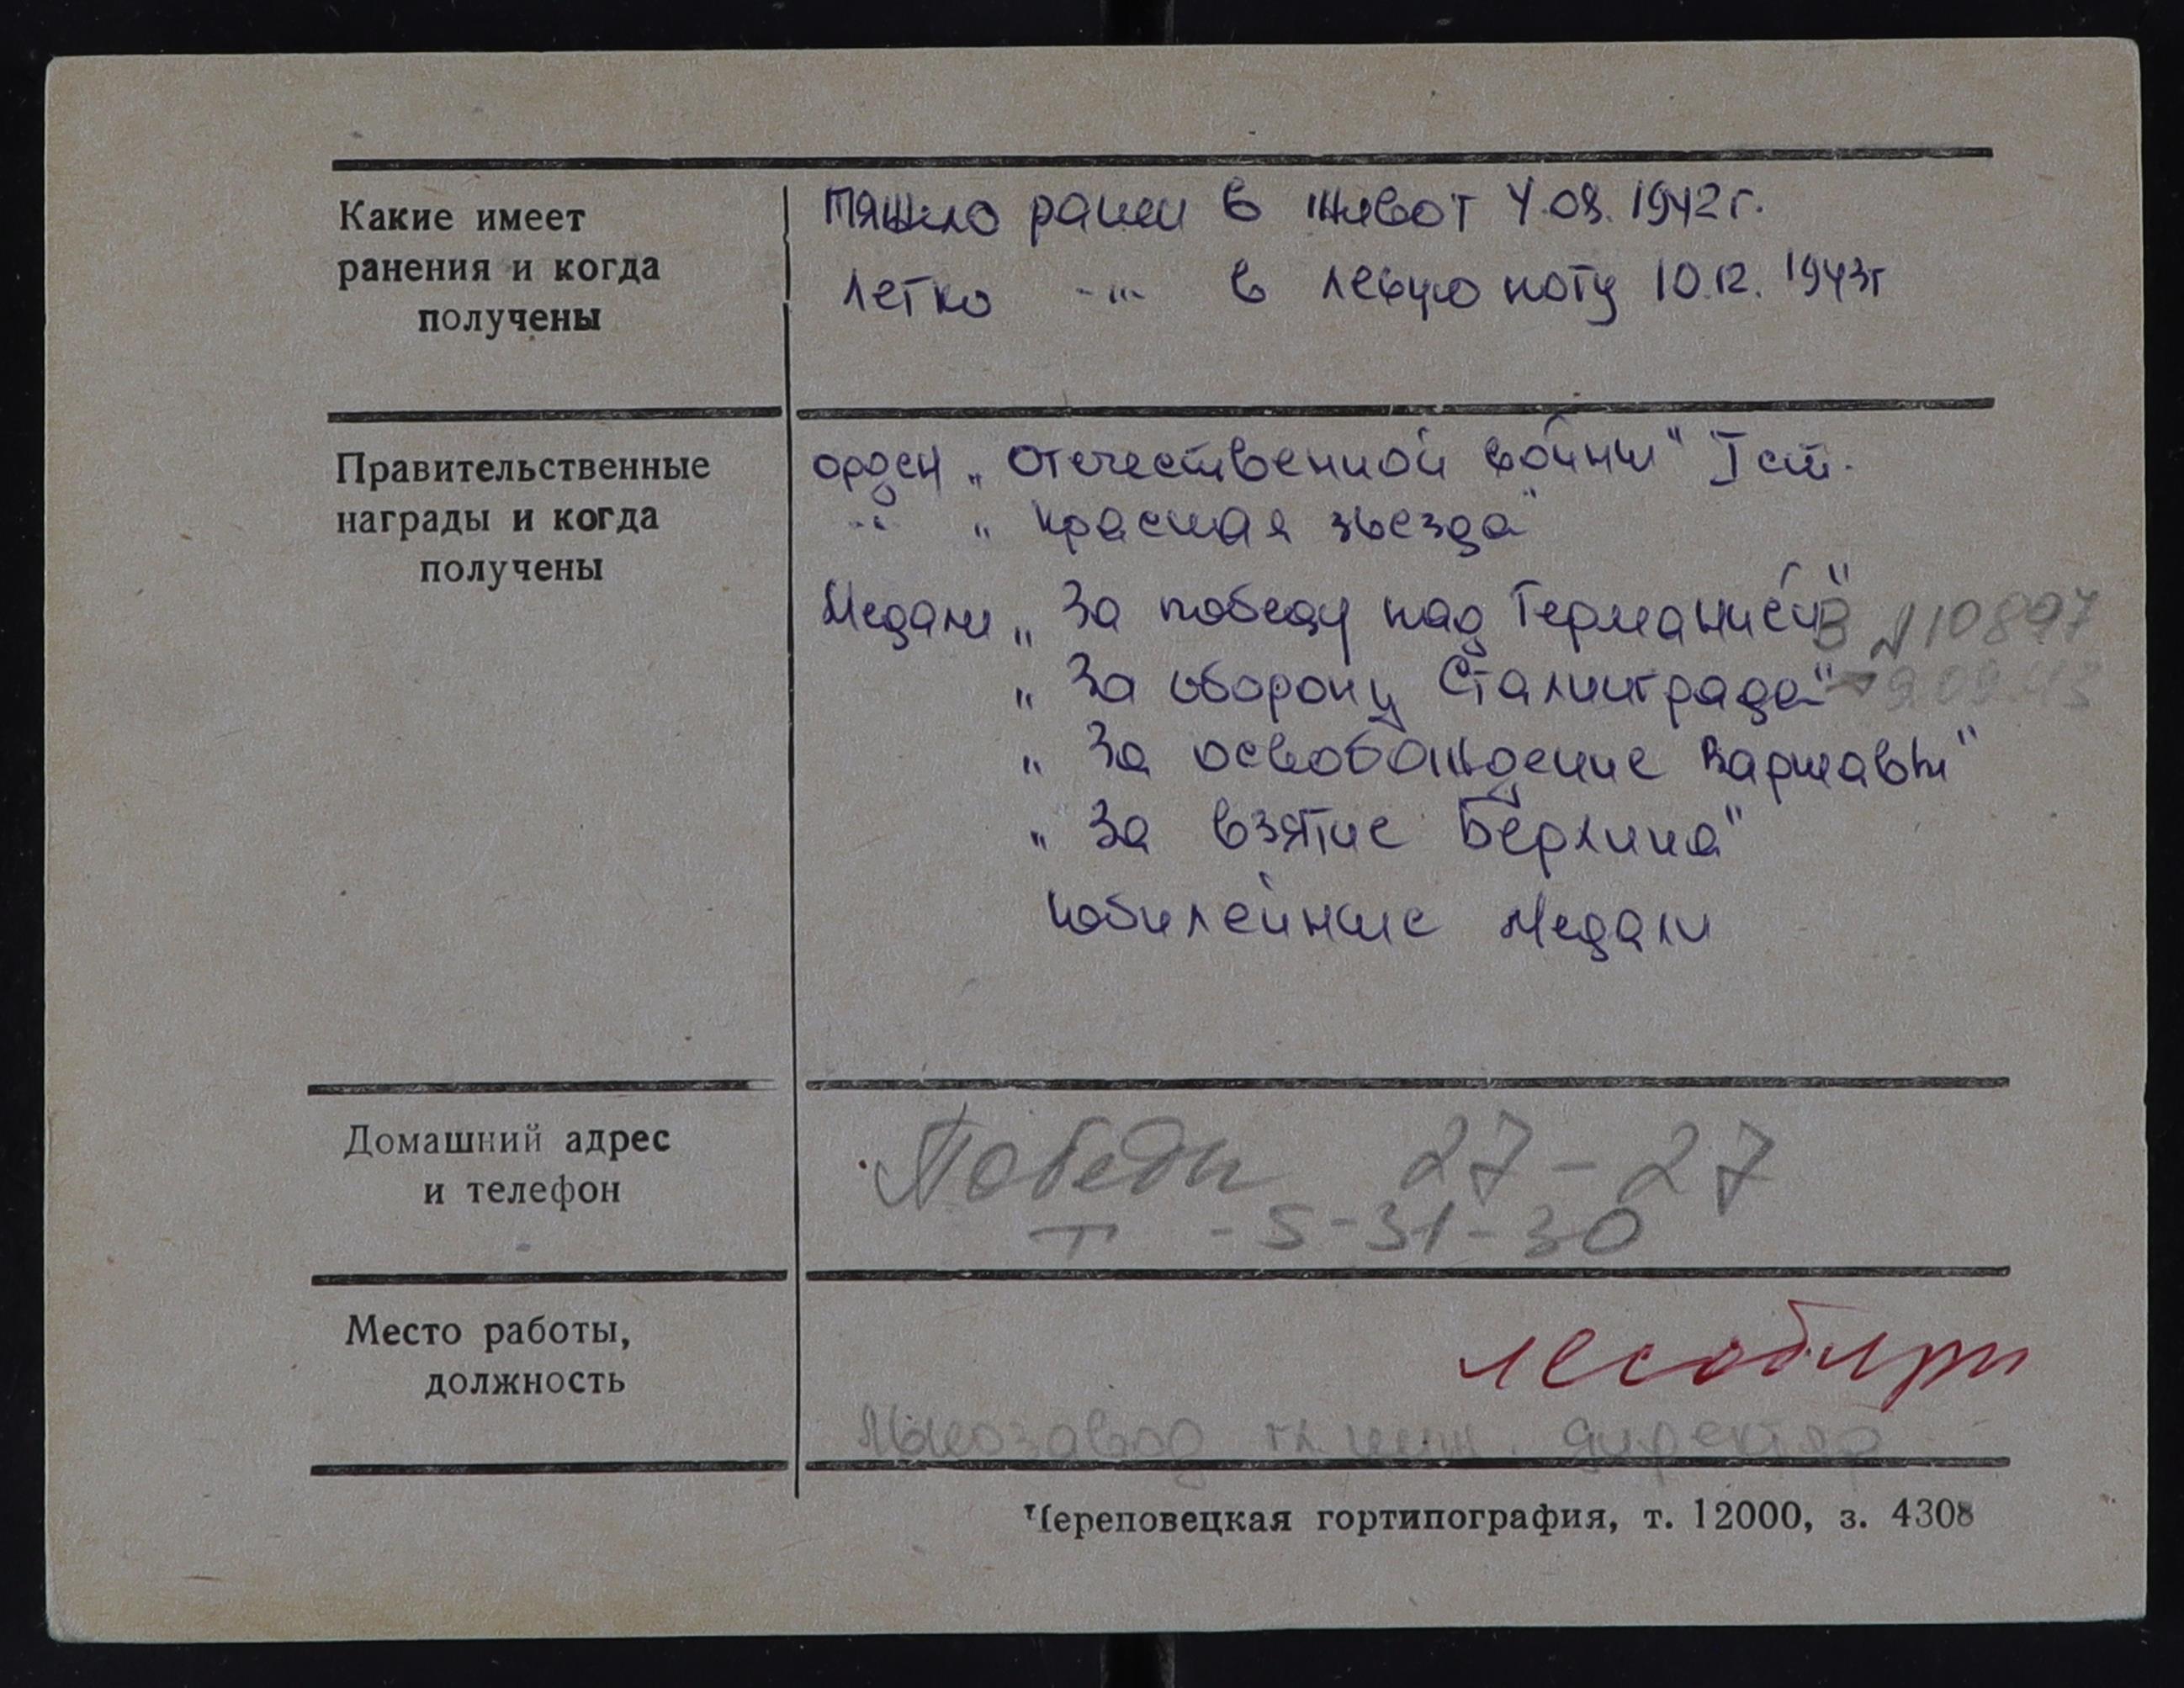 Какие имеет
ранения и когда
получены
тяжело ранен в живот 4.08.1942г.
легко -"- в левую ногу 10.12.1943г
Правительственные
награды и когда
получены
орден „Отечественной войны" I ст.
-"- „Красная звезда"
Медали „За победу над Германией" В № 10897
„За оборону Сталинграда"
„За освобождение Варшавы"
„За взятие Берлина"
юбилейные медали
Домашний адрес
и телефон
Победы 27-27
Т -5-31-30
Место работы,
должность
директор
Череповецкая гортипография, т. 12000, з. 4308